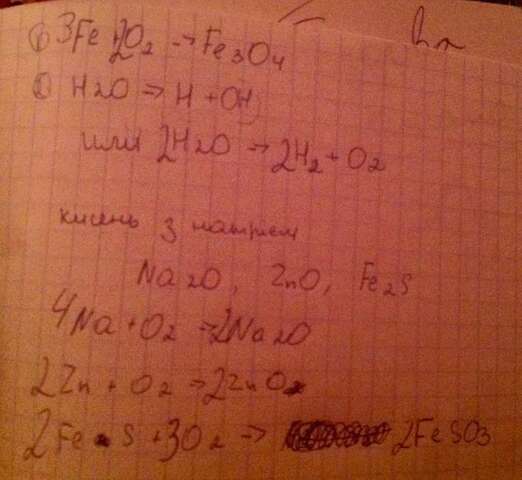 ① 3Fe + 2O₂ → Fe₃O₄
② H2O → H + OH
или 2H2O → 2H₂ + O₂
кисень з натрієм
Na2O, ZnO, Fe₂S
4Na + O₂ → 2Na2O
2Zn + O₂ → 2ZnO
2FeS + 3O₂ → 2FeSO₃